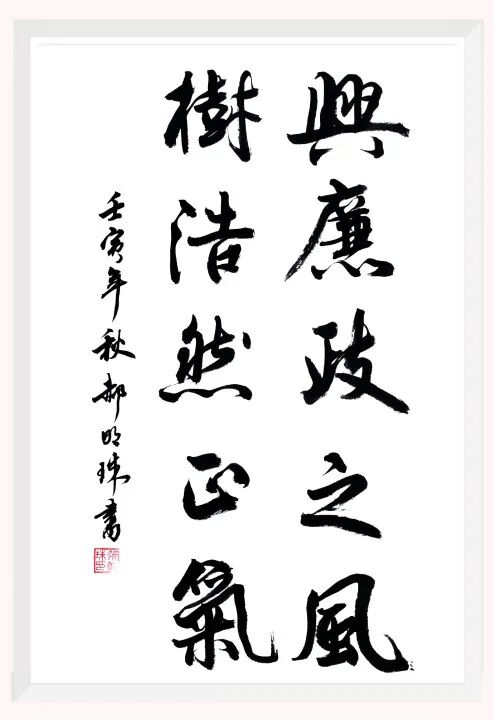 興廉政之風
樹浩然正氣
壬寅年秋郝明珠書